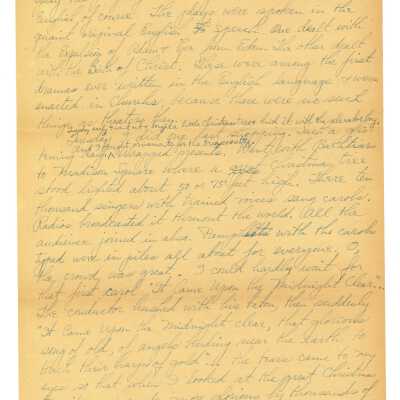 English of course. The plays were spoken in the
quaint original English speech. One dealt with
the Expulsion of Adam & Eve from Eden. The other dealt
with the Birth of Christ. These were among the first
dramas ever written in the English language & were
enacted in Churches, because there were no such
things as theatres then.
last shopping. Just a
wrapped presents. Went to
to Madison Square where a Christmas tree
stood lighted about 50 or 75 feet high. There ten
thousand singers with trained voices sang carols.
Radios broadcasted it thruout the world. All the
audience joined in also. Pamphlets with the carols
typed were in piles all about for everyone. O,
the crowd was great. I could hardly wait for
that first carol "It Came Upon the Midnight Clear".
The conductor hushed with his baton, then suddenly
"It Came Upon the Midnight clear, that glorious
song of old, of angels bending near the earth to
touch their harps of gold"... The tears came to my
eyes so that when I looked at the great Christmas
by thousands of